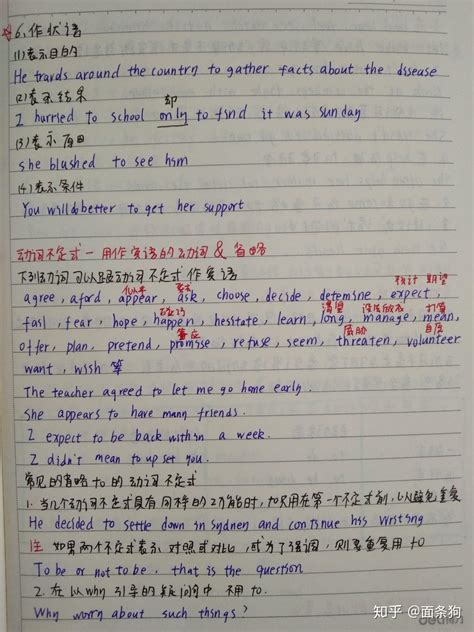 6. 作状语
(1) 表示目的
He travds around the country to gather facts about the disease
(2) 表示结果
却
I hurried to school only to find it was sunday
(3) 表示原因
she blushed to see him
(4) 表示条件
You will do better to get her support
动词不定式一用作宾语的动词 & 省略
下列动词可以跟动词不定式作宾语
似乎 要求 预计 期望
agree, aford, appear, ask, choose, decide, detemine, expect,
碰巧 渴望 设法做成 打算
fail, fear, hope, happen, hesitate, learn, long, manage, mean,
答应 威胁 自愿
offer, plan, pretend, promise, refuse, seem, threaten, volunteer
want, wish 等
The teacher agreed to let me go home early.
She appears to have many friends.
I expect to be back within a week.
I didn't mean to upset you.
常见的省略 to 的动词不定式
1. 当几个动词不定式具有同样的功能时, to 只用在第一个不定式前, 以避免重复
He decided to settle down in Sydney and continue his writing
注 如果两个不定式表示对照或对比, 或为了强调, 则要重复用 to
To be or not to be, that is the question
2. 在以 why 引导的疑问句中不用 to.
Why worry about such things?
知乎 @面条狗